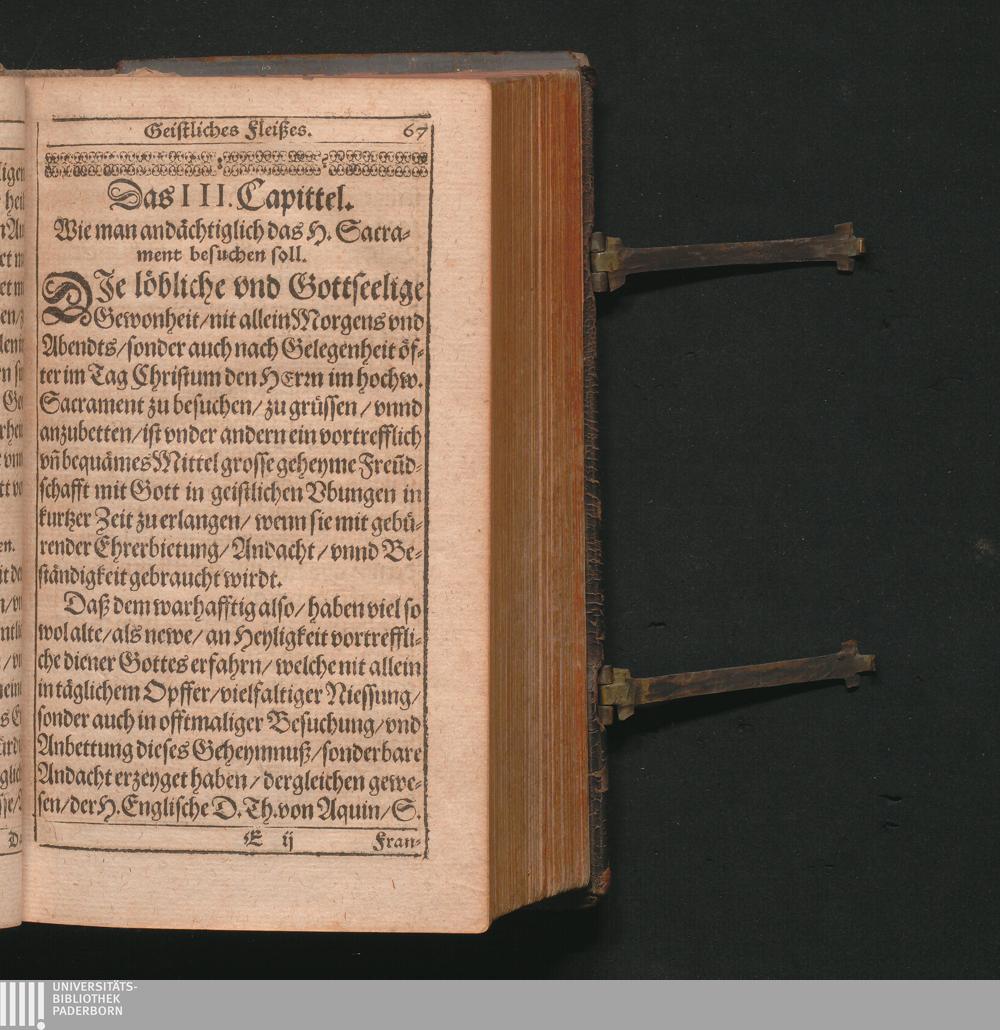 Geistliches Fleißes. 67
Das III. Capittel.
Wie man andächtiglich das H. Sacra-
ment besuchen soll.
DIe löbliche vnd Gottseelige
Gewonheit/nit allein Morgens vnd
Abendts/sonder auch nach Gelegenheit öf-
ter im Tag Christum den HErrn im hochw.
Sacrament zu besuchen/ zu grüssen / vnnd
anzubetten/ist vnder andern ein vortrefflich
vñ bequämes Mittel grosse geheyme Freüd-
schafft mit Gott in geistlichen Vbungen in
kurtzer Zeit zu erlangen/ wenn sie mit gebü-
render Ehrerbietung/ Andacht / vnnd Be-
ständigkeit gebraucht wirdt.
Daß dem warhafftig also/ haben viel so
wol alte/als newe/ an Heyligkeit vortreffli-
che diener Gottes erfahrn/ welche nit allein
in täglichem Opffer/vielfaltiger Niessung/
sonder auch in offtmaliger Besuchung/vnd
Anbettung dieses Geheymnuß/sonderbare
Andacht erzeyget haben/ dergleichen gewe-
sen/der H. Englische D. Th. von Aquin/ S.
E ij Fran-
UNIVERSITÄTS-
BIBLIOTHEK
PADERBORN